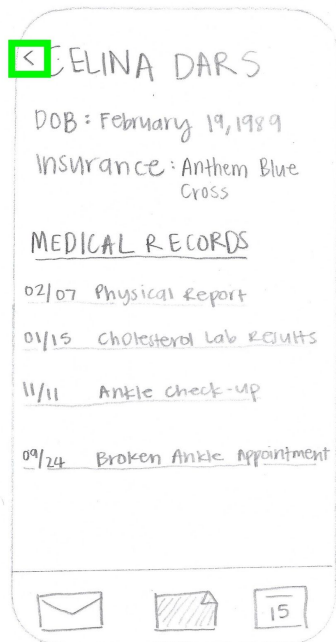 < CELINA DARS
DOB: February 19, 1989
Insurance: Anthem Blue
Cross
MEDICAL RECORDS
02/07 Physical Report
01/15 Cholesterol Lab Results
11/11 Ankle check-up
09/24 Broken Ankle Appointment
15